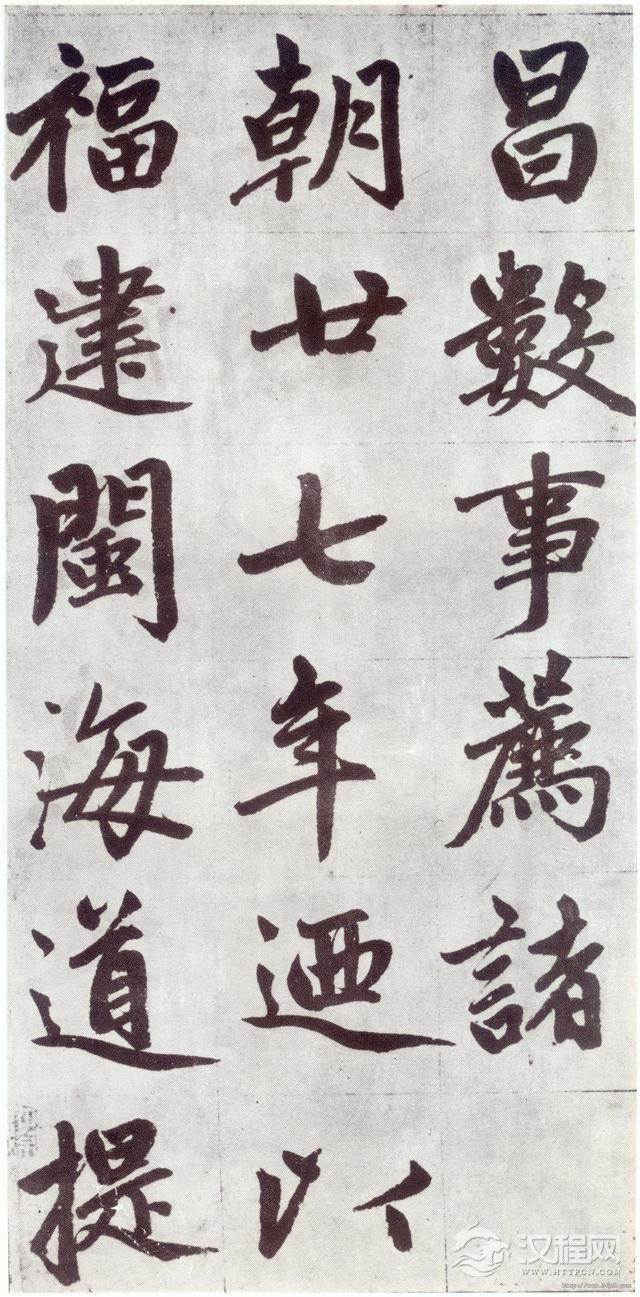 昌數事薦諸
朝廿七年迺以
福建閩海道提
汉程网
WWW.HTTPCN.COM